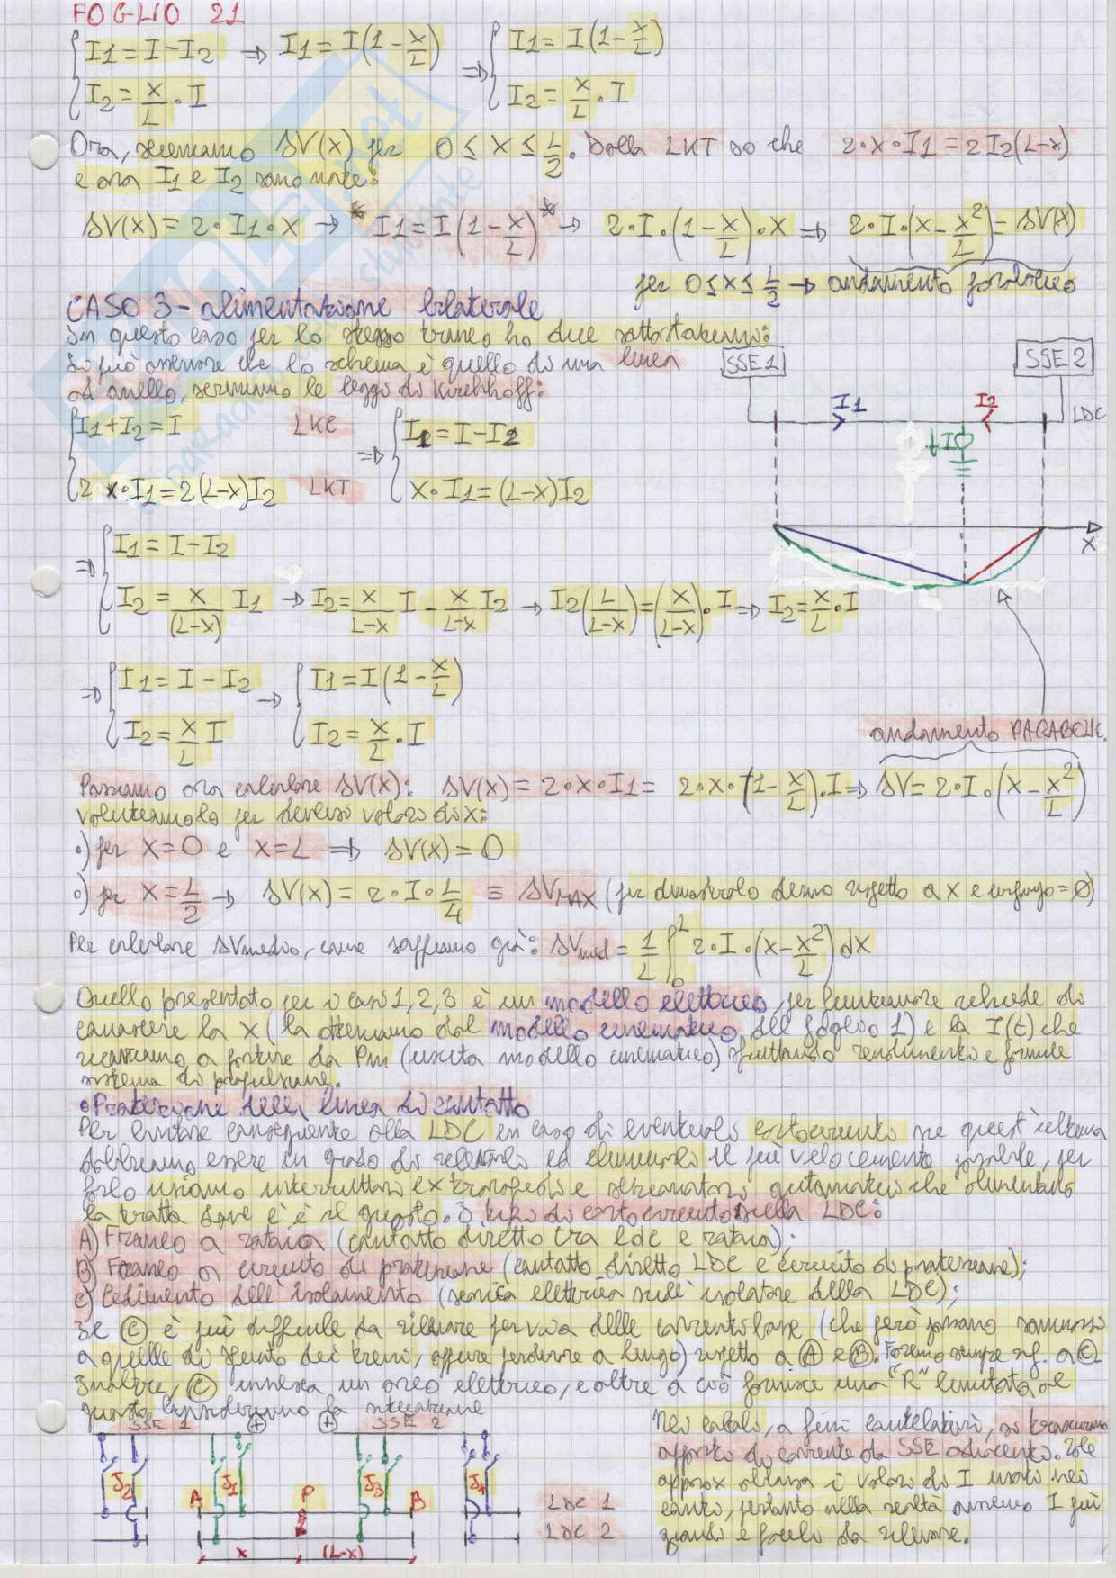 FOGLIO 21
I1 = I - I2 ⇒ I1 = I(1 - x/L) ⇒ I1 = I(1 - x/L)
I2 = x/L · I    I2 = x/L · I
Ora, scriviamo ΔV(x) per 0 ≤ x ≤ L/2. Dalla LKT so che 2·x·I1 = 2I2(L-x)
e ora I1 e I2 sono note:
ΔV(x) = 2·I1·x → * I1 = I(1 - x/L) * → 2·I·(1 - x/L)·x ⇒ 2·I·(x - x²/L) = ΔV(x)
per 0 ≤ x ≤ L/2 → andamento parabolico
CASO 3 - alimentazione bilaterale
In questo caso per lo stesso tronco ho due sottostazioni:
Si può osservare che lo schema è quello di una linea
ad anello, scriviamo le leggi di Kirchhoff:
SSE 1    SSE 2
I1    I2    LDC
I
x
I1 + I2 = I    LKC    ⇒    I1 = I - I2
2 x·I1 = 2(L-x)I2    LKT    x·I1 = (L-x)I2
⇒ I1 = I - I2
I2 = x/(L-x) I1 → I2 = x/(L-x) I - x/(L-x) I2 → I2(L/(L-x)) = (x/(L-x))·I ⇒ I2 = x/L·I
⇒ I1 = I - I2 → I1 = I(1 - x/L)
I2 = x/L I    I2 = x/L·I
andamento PARABOLIC.
Passiamo ora calcolare ΔV(x): ΔV(x) = 2·x·I1 = 2·x·(1 - x/L)·I ⇒ ΔV = 2·I·(x - x²/L)
valutiamolo per diversi valori di x:
•) per x = 0 e x = L ⇒ ΔV(x) = 0
•) per x = L/2 → ΔV(x) = 2·I·L/4 ≡ ΔVMAX (per dimostrarlo derivo rispetto a x e pongo = 0)
Per calcolare ΔVmedio, come sappiamo già: ΔVmed = 1/L ∫₀ᴸ 2·I·(x - x²/L) dx
Quello presentato per i casi 1, 2, 3 è un modello elettrico, per funzionare richiede di
conoscere la x (la otteniamo dal modello cinematico, del foglio 1) e la I(t) che
ricaviamo a partire da Pm (uscita modello cinematico) sfruttando rendimento e formule
sistema di propulsione.
• Protezione della linea di contatto
Per evitare conseguenze alla LDC in caso di eventuali cortocircuiti su quest'ultima
dobbiamo essere in grado di rilevarlo ed eliminarlo il più velocemente possibile, per
farlo usiamo interruttori extrarapidi e sezionatori automatici che alimentano
la tratta dove c'è il guasto. 3 tipi di cortocircuito sulla LDC:
A) Franco a rotaia (contatto diretto tra ldc e rotaia);
B) Franco a circuito di protezione (contatto diretto LDC e circuito di protezione);
C) Cedimento dell'isolamento (scarica elettrica sull'isolatore della LDC);
Se C è più difficile da rilevare per via delle correnti basse (che però possono
a quelle di spunto dei treni, oppure perdurare a lungo) rispetto a A e B. Faremo sempre rif. a C.
Inoltre, C innesca un arco elettrico, e oltre a ciò fornisce una "R" limitata
SSE 1    SSE 2
J2    J1    J3    J4
A    P    B
LDC 1
LDC 2
x    (L-x)
Nei calcoli, a fini cautelativi, si trascura
apporto di corrente da SSE adiacenti. Tale
approx altera i valori di I usati nei
conti, pertanto nella realtà avremo I più
grandi e facili da rilevare.